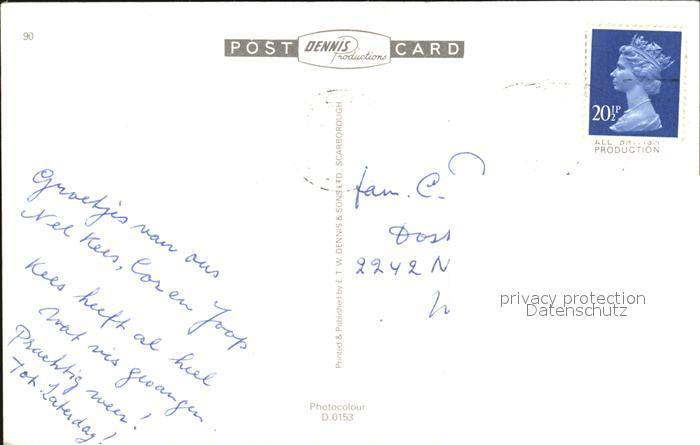 90
POST DENNIS Productions CARD
20½P
ALL BRITISH
PRODUCTION
Groetjes van ons
Nel Kees, Cor en Joop
Kees heeft al heel
wat vis gevangen.
Prachtig weer!
Tot Zaterdag!
Printed & Published by E.T.W. DENNIS & SONS LTD., SCARBOROUGH
fam. C.
Dost
2242 N
privacy protection
Datenschutz
Photocolour
D.0153